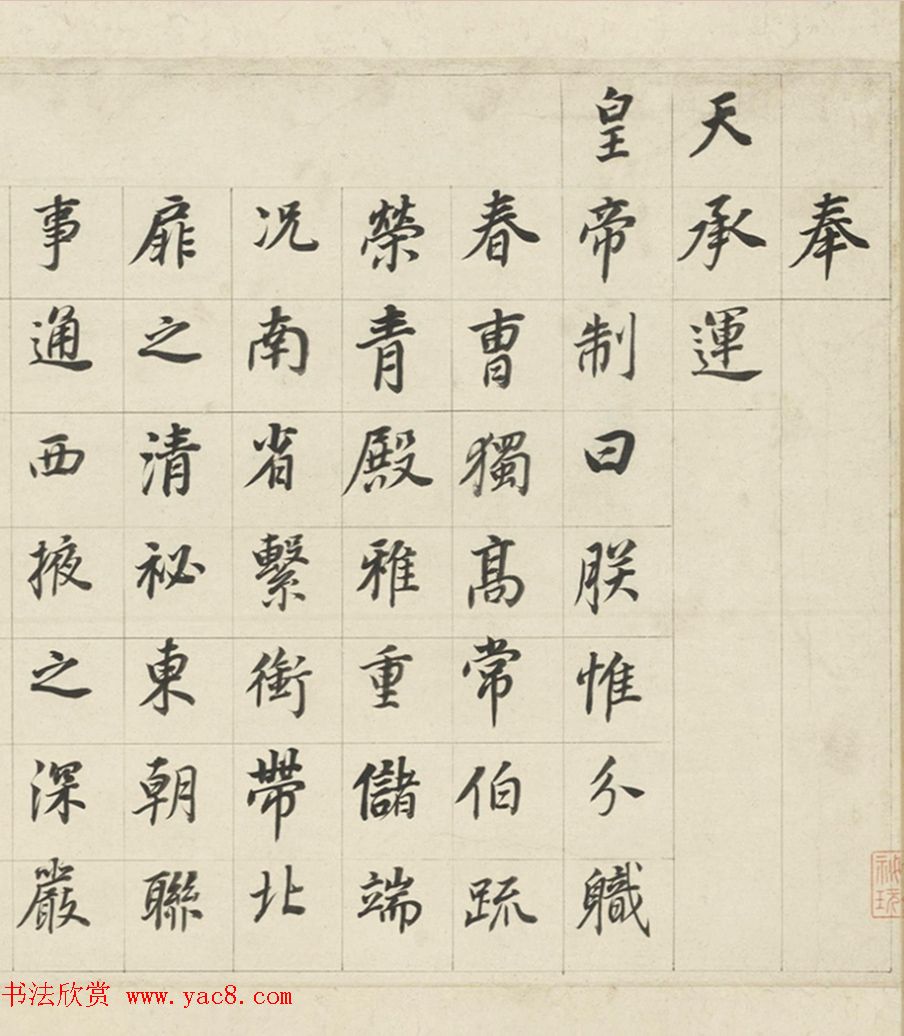 奉
天承運
皇帝制曰朕惟分職
春曹獨高常伯疏
榮青殿雅重儲端
况南省繫銜帶北
扉之清祕東朝聯
事通西掖之深嚴
书法欣赏 www.yac8.com